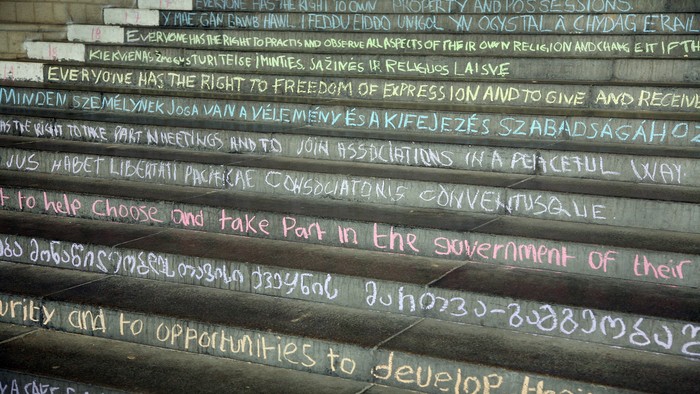 EVERYONE HAS THE RIGHT TO OWN PROPERTY AND POSSESSIONS.
Y MAE GAN BAWB HAWL I FEDDU EIDDO UNIGOL YN OGYSTAL Â CHYDAG ERAILL
EVERYONE HAS THE RIGHT TO PRACTIS AND OBSERVE ALL ASPECTS OF THEIR OWN RELIGION AND CHANGE IT IF
KIEKVIENAS ŽMOGUS TURI TEISĘ Į MINTIES, SĄŽINĖS IR RELIGIJOS LAISVĘ
EVERYONE HAS THE RIGHT TO FREEDOM OF EXPRESSION AND TO GIVE AND RECEIV
MINDEN SZEMÉLYNEK JOGA VAN A VÉLEMÉNY ÉS A KIFEJEZÉS SZABADSÁGÁHOZ
HAS THE RIGHT TO TAKE PART IN MEETINGS AND TO JOIN ASSOCIATIONS IN A PEACEFUL WAY.
VUS HABET LIBERTATI PACIFICAE CONSOCIATONIS CONVENTUSQUE.
t to help choose and take Part in the government of their
მონაწილეობდეს თავისი ქვეყნის მართვა-გამგეობაშ
urity and to opportunities to develop their